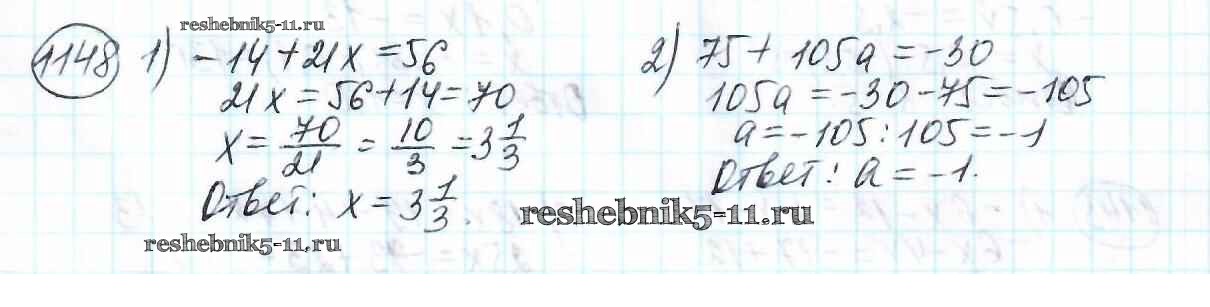 reshebnik5-11.ru
1148 1) -14+21x=56
21x=56+14=70
x=70/21=10/3=3 1/3
Ответ: x=3 1/3.
2) 75+105a=-30
105a=-30-75=-105
a=-105:105=-1
Ответ: a=-1.
reshebnik5-11.ru
reshebnik5-11.ru